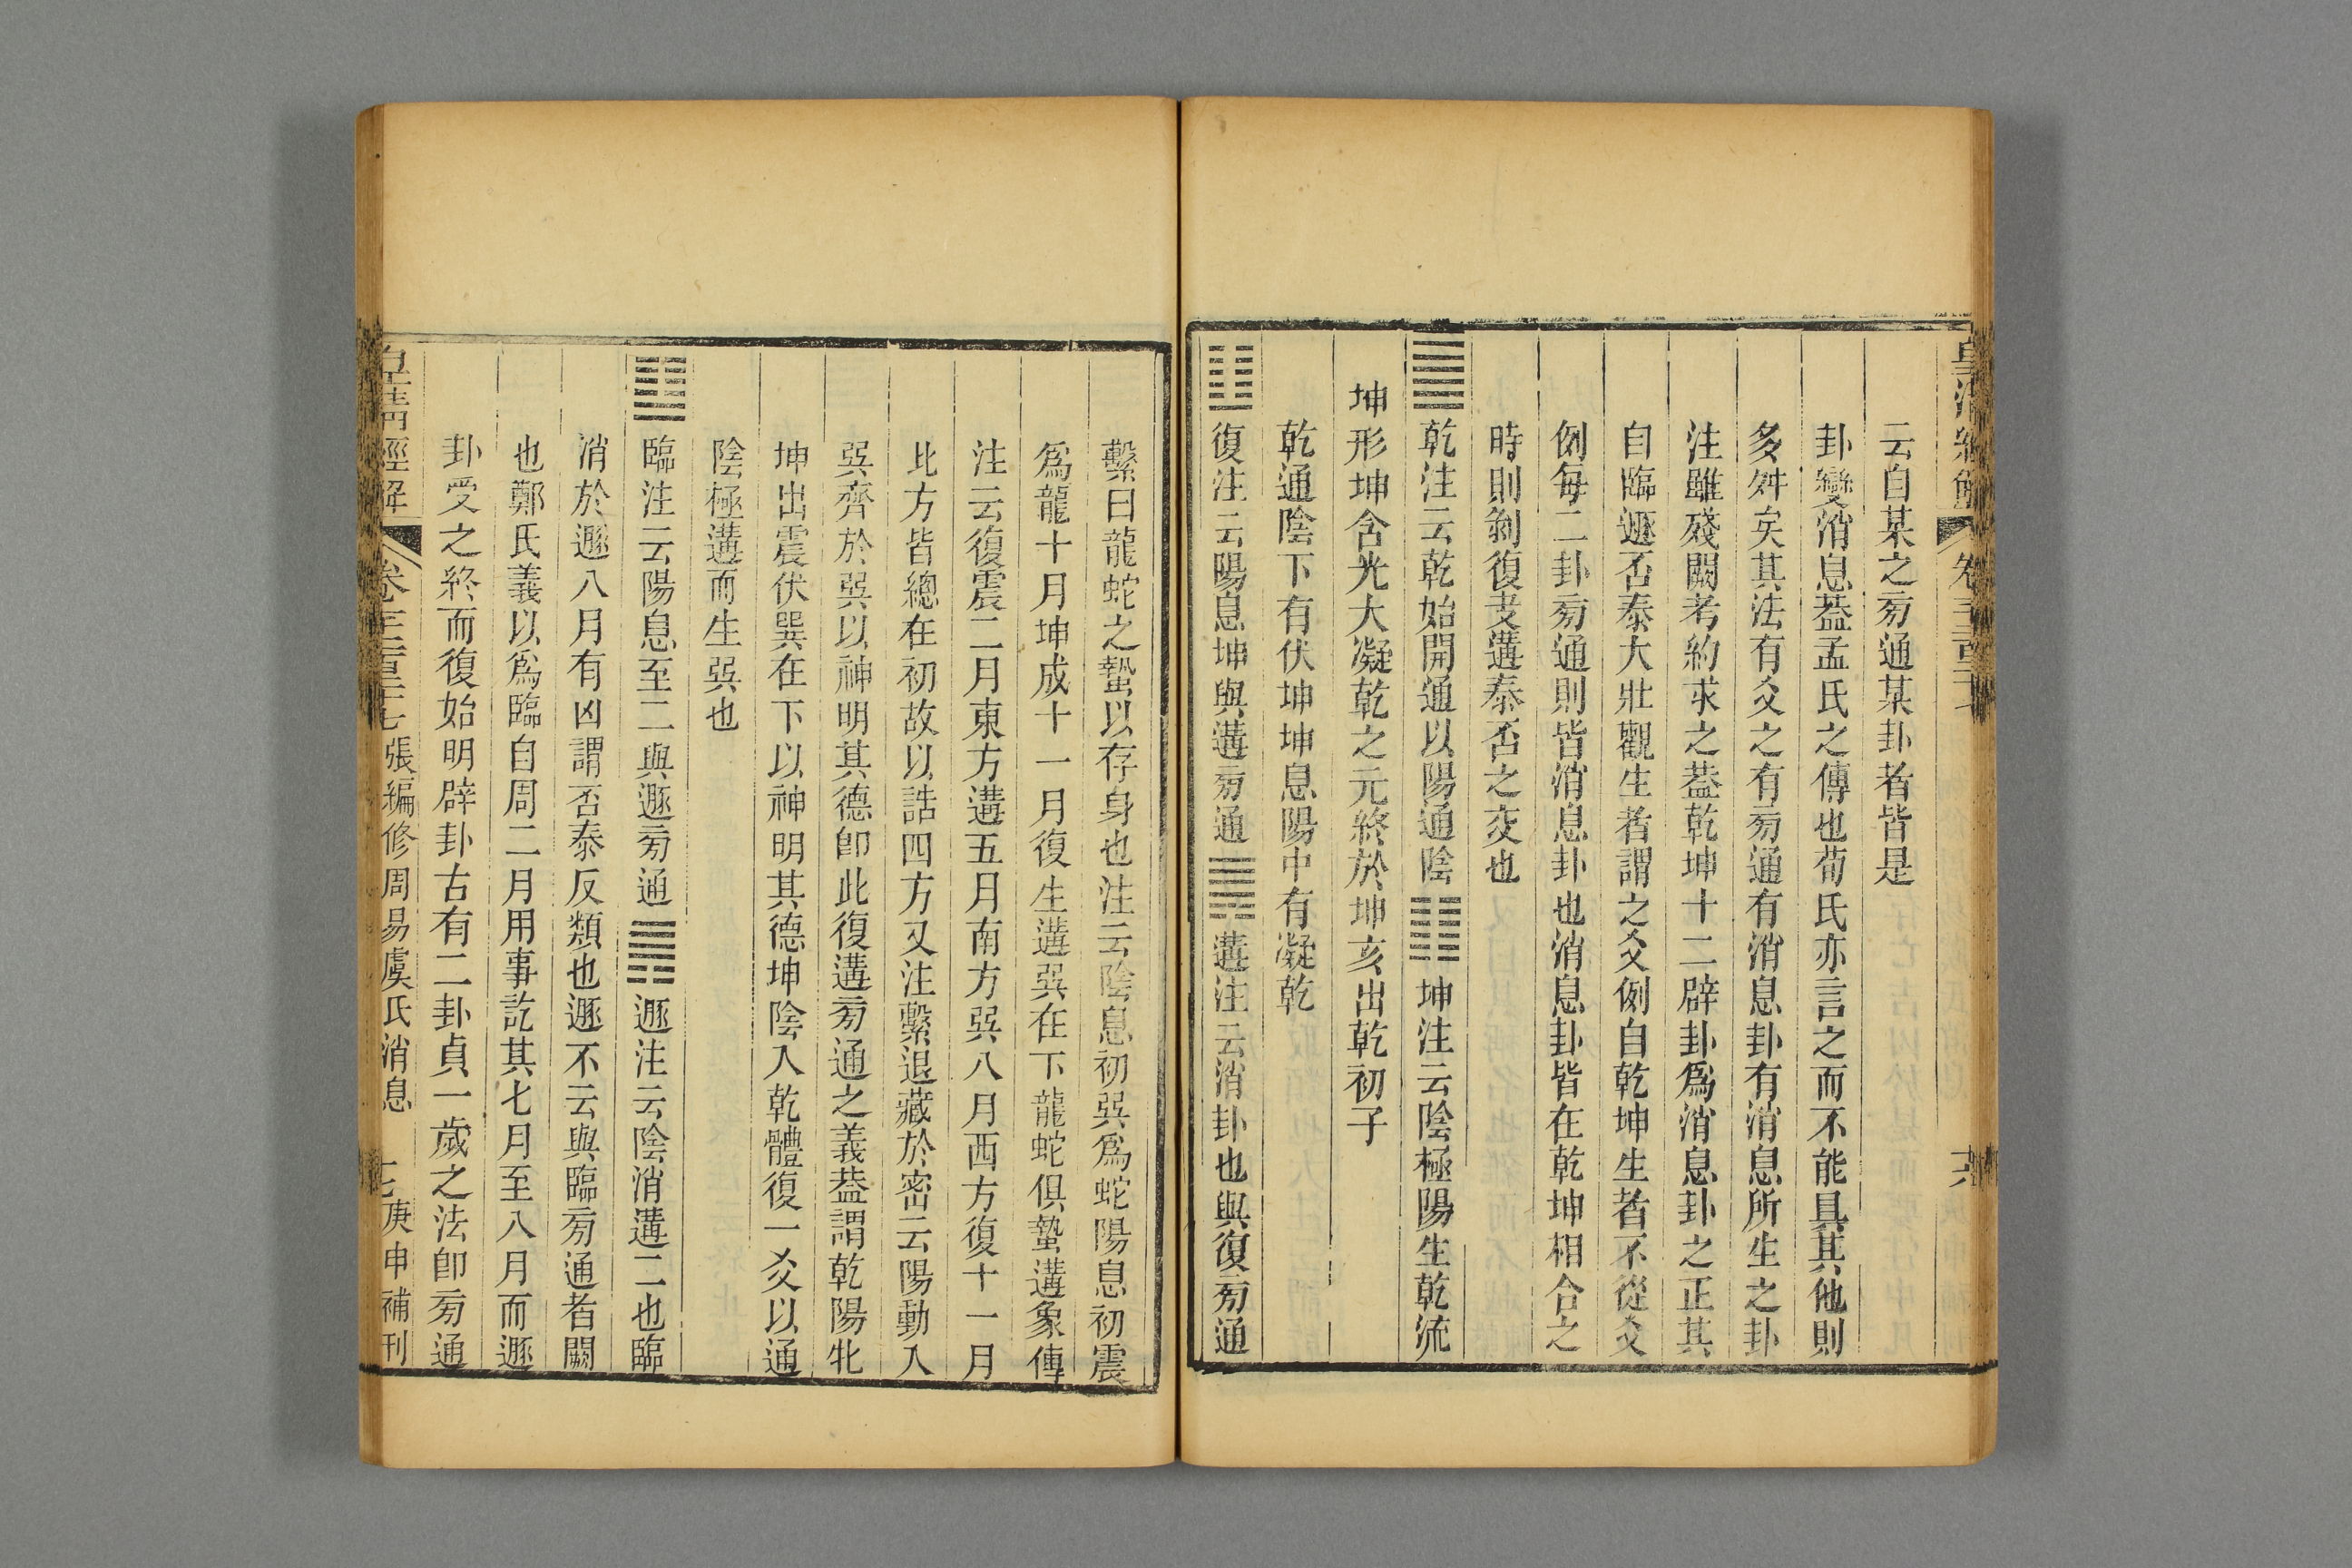 云自某之旁通某卦者皆是
卦變消息葢孟氏之傳也荀氏亦言之而不能具其他則
多舛矣其法有爻之有旁通有消息卦有消息所生之卦
注雖殘闕考約求之葢乾坤十二辟卦爲消息卦之正其
自臨遯否泰大壯觀生者謂之爻例自乾坤生者不從爻
例每二卦旁通則皆消息卦也消息卦皆在乾坤相合之
時則剝復夬遘泰否之交也
䷀乾注云乾始開通以陽通陰䷁坤注云陰極陽生乾流
坤形坤含光大凝乾之元終於坤亥出乾初子
乾通陰下有伏坤坤息陽中有凝乾
䷗復注云陽息坤與遘旁通䷫遘注云消卦也與復旁通
繫曰龍蛇之蟄以存身也注云陰息初巽爲蛇陽息初震
爲龍十月坤成十一月復生遘巽在下龍蛇俱蟄遘象傳
注云復震二月東方遘五月南方巽八月西方復十一月
北方皆總在初故以誥四方又注繫退藏於密云陽動入
巽齊於巽以神明其德卽此復遘旁通之義葢謂乾陽牝
坤出震伏巽在下以神明其德坤陰入乾體復一爻以通
陰極遘而生巽也
䷒臨注云陽息至二與遯旁通䷠遯注云陰消遘二也臨
消於遯八月有凶謂否泰反類也遯不云與臨旁通者闕
也鄭氏義以爲臨自周二月用事訖其七月至八月而遯
卦受之終而復始明辟卦古有二卦貞一歲之法卽旁通
皇清經解 卷千二百二十七 張編修周易虞氏消息 七 庚申補刊